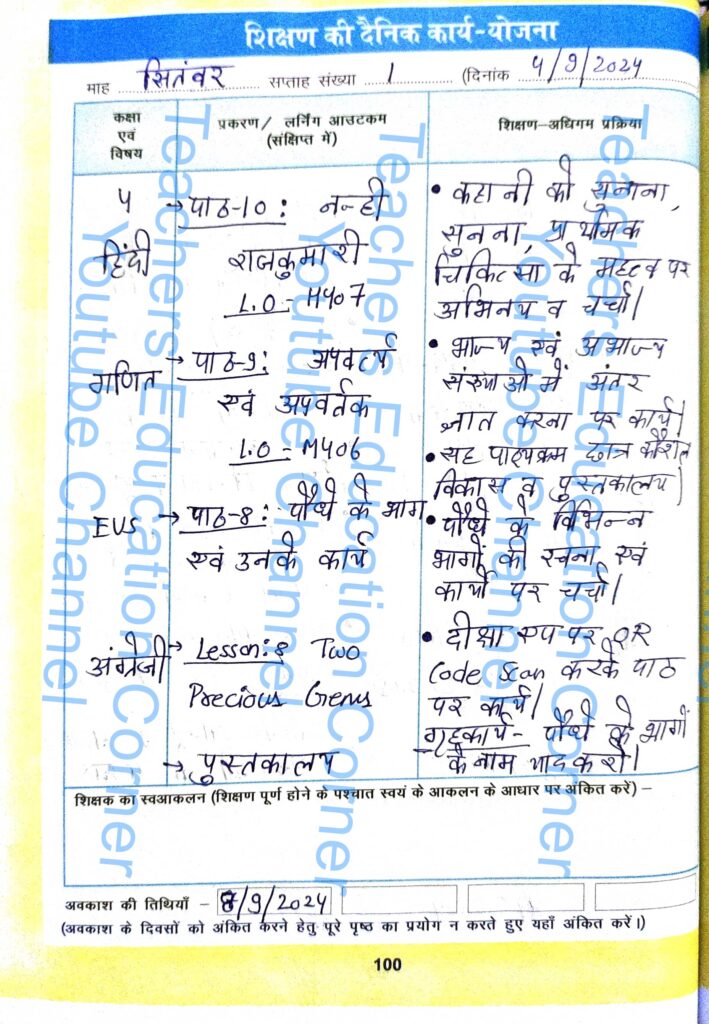 शिक्षण की दैनिक कार्य-योजना
माह सितंबर सप्ताह संख्या 1 (दिनांक 4/9/2024
कक्षा एवं विषय
प्रकरण/ लर्निंग आउटकम (संक्षिप्त में)
शिक्षण-अधिगम प्रक्रिया
4
हिंदी
→ पाठ-10: नन्ही
राजकुमारी
L.O - H407
• कहानी को सुनाना,
सुनना, प्राथमिक
चिकित्सा के महत्व पर
अभिनय व चर्चा।
गणित
→ पाठ-9: अपवर्त्य
एवं अपवर्तक
L.O - M406
• भाज्य एवं अभाज्य
संख्याओं में अंतर
ज्ञात करना पर कार्य।
• सह पाठ्यक्रम छात्र कौशल
विकास व पुस्तकालय।
EVS
→ पाठ-8: पौधे के भाग
एवं उनके कार्य
• पौधे के विभिन्न
भागों की रचना एवं
कार्यों पर चर्चा।
अंग्रेजी
→ Lesson:8 Two
Precious Gems
• दीक्षा एप पर QR
Code Scan करके पाठ
पर कार्य।
→ पुस्तकालय
गृहकार्य- पौधे के भागों
के नाम याद करो।
शिक्षक का स्वआकलन (शिक्षण पूर्ण होने के पश्चात स्वयं के आकलन के आधार पर अंकित करें) –
अवकाश की तिथियाँ – 8/9/2024
(अवकाश के दिवसों को अंकित करने हेतु पूरे पृष्ठ का प्रयोग न करते हुए यहाँ अंकित करें।)
100
Teachers Education Corner
Youtube Channel
Teachers Education Corner
Youtube Channel
Teachers Education Corner
Youtube Channel